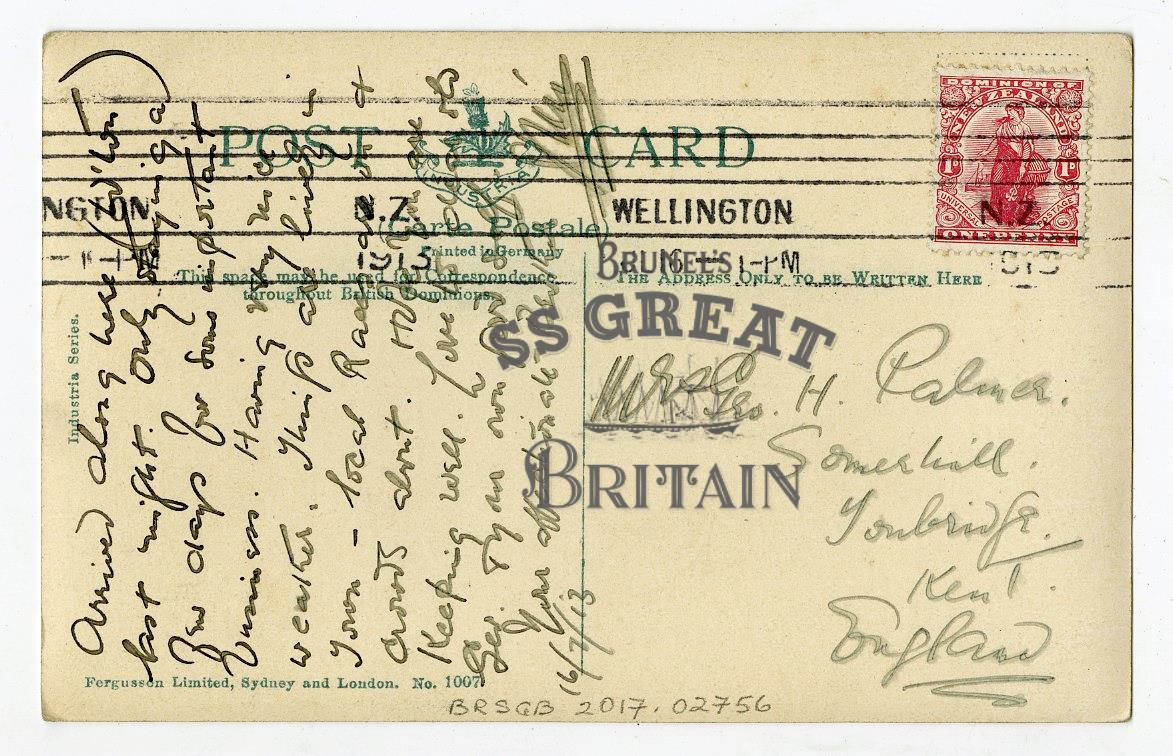 POST CARD
INDUSTRIA
(Carte Postale)
Printed in Germany
This space may be used for Correspondence
throughout British Dominions.
THE ADDRESS ONLY TO BE WRITTEN HERE
Industria Series.
Fergusson Limited, Sydney and London. No. 1007
DOMINION OF
NEW ZEALAND
1D 1D
UNIVERSAL POSTAGE
ONE PENNY
NGTON N.Z. WELLINGTON N.Z.
1913 16 1-PM
Arrived along here (W'ton)
last night. Only staying a
few days for some important
business. Having very nice
weather. Things are lively in
Town - local Races are on +
crowds about. Hope you are
Keeping well. Love to and lots
for own
Your affectionate
16/7/13
Mrs Geo. H. Palmer.
Somerhill.
Tonbridge.
Kent.
England
BRSGB 2017.02756
BRUNEL'S
SS GREAT
BRITAIN